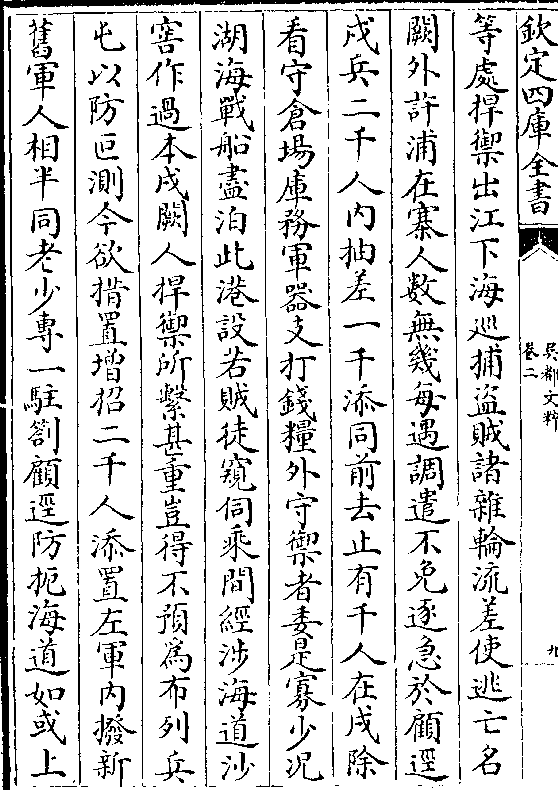 欽定四庫全書
吳都文粹
卷二
九
等處捍禦出江下海巡捕盜賊諸雜輪流差使逃亡名
闕外許浦在寨人數無幾每遇調遣不免逐急於顧逕
戍兵二千人内抽差一千添同前去止有千人在戍除
看守倉場庫務軍器支打錢糧外守禦者委是寡少况
湖海戰船盡泊此港設若賊徒窺伺乘間經涉海道沙
害作過本戍闕人捍禦所繫甚重豈得不預為布列兵
屯以防叵測今欲措置增招二千人添置左軍内撥新
舊軍人相半同老少專一駐劄顧逕防扼海道如或上